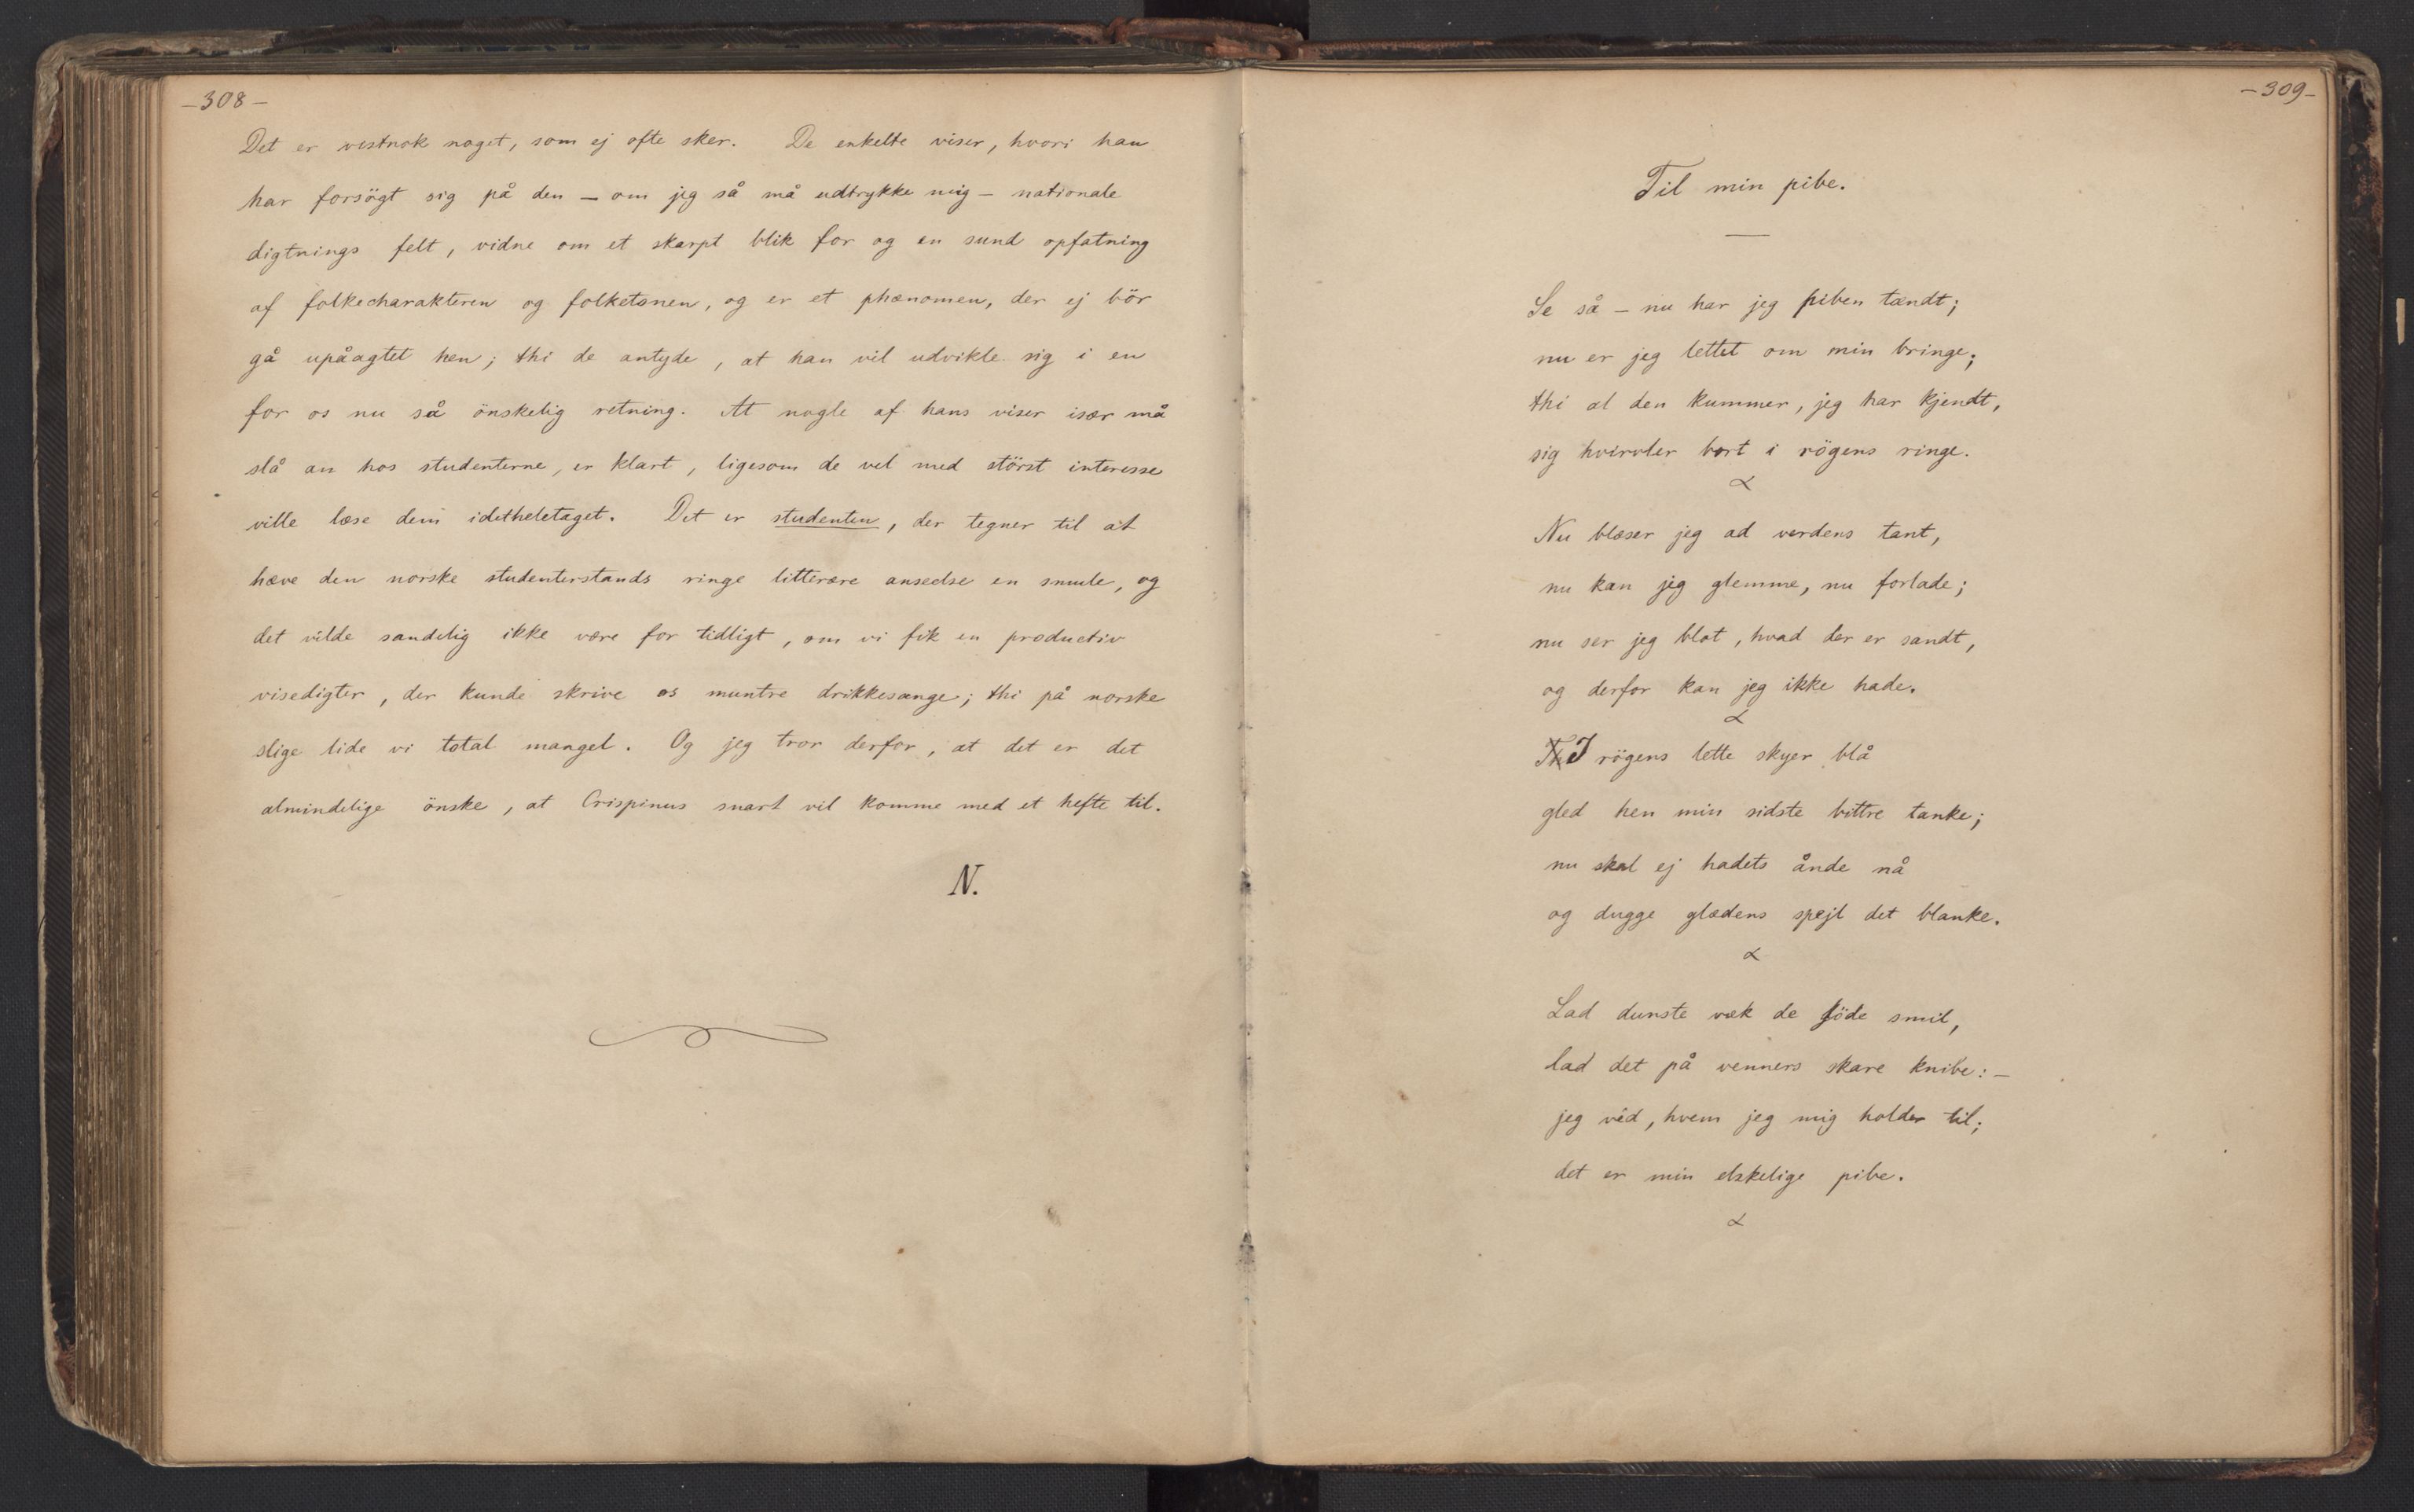 –308–
Det er vistnok noget, som ej ofte sker. De enkelte viser, hvori han
har forsögt sig på den – om jeg så må udtrykke mig – nationale
digtnings felt, vidne om et skarpt blik for og en sund opfatning
af folkecharakteren og folketonen, og er et phænomen, der ej bör
gå upåagtet hen; thi de antyde, at han vil udvikle sig i en
for os nu så önskelig retning. At nogle af hans viser især må
slå an hos studenterne, er klart, ligesom de vel med störst interesse
ville læse dem idetheletaget. Det er studenten, der tegner til at
hæve den norske studenterstands ringe litterære anseelse en smule, og
det vilde sandelig ikke være for tidligt, om vi fik en productiv
visedigter, der kunde skrive os muntre drikkesange; thi på norske
slige lide vi total mangel. Og jeg tror derfor, at det er det
almindelige önske, at Crispinus snart vil komme med et hefte til.
N.
–309–
Til min pibe.
Se så – nu har jeg piben tændt;
nu er jeg lettet om min bringe;
thi al den kummer, jeg har kjendt,
sig hvirvler bort i rögens ringe.
Nu blæser jeg ad verdens tant,
nu kan jeg glemme, nu forlade;
nu ser jeg blot, hvad der er sandt,
og derfor kan jeg ikke hade.
I rögens lette skyer blå
gled hen min sidste bittre tanke;
nu skal ej hadets ånde nå
og dugge glædens spejl det blanke.
Lad dunste væk de söde smil,
lad det på venners skare knibe: –
jeg véd, hvem jeg mig holder til;
det er min elskelige pibe.